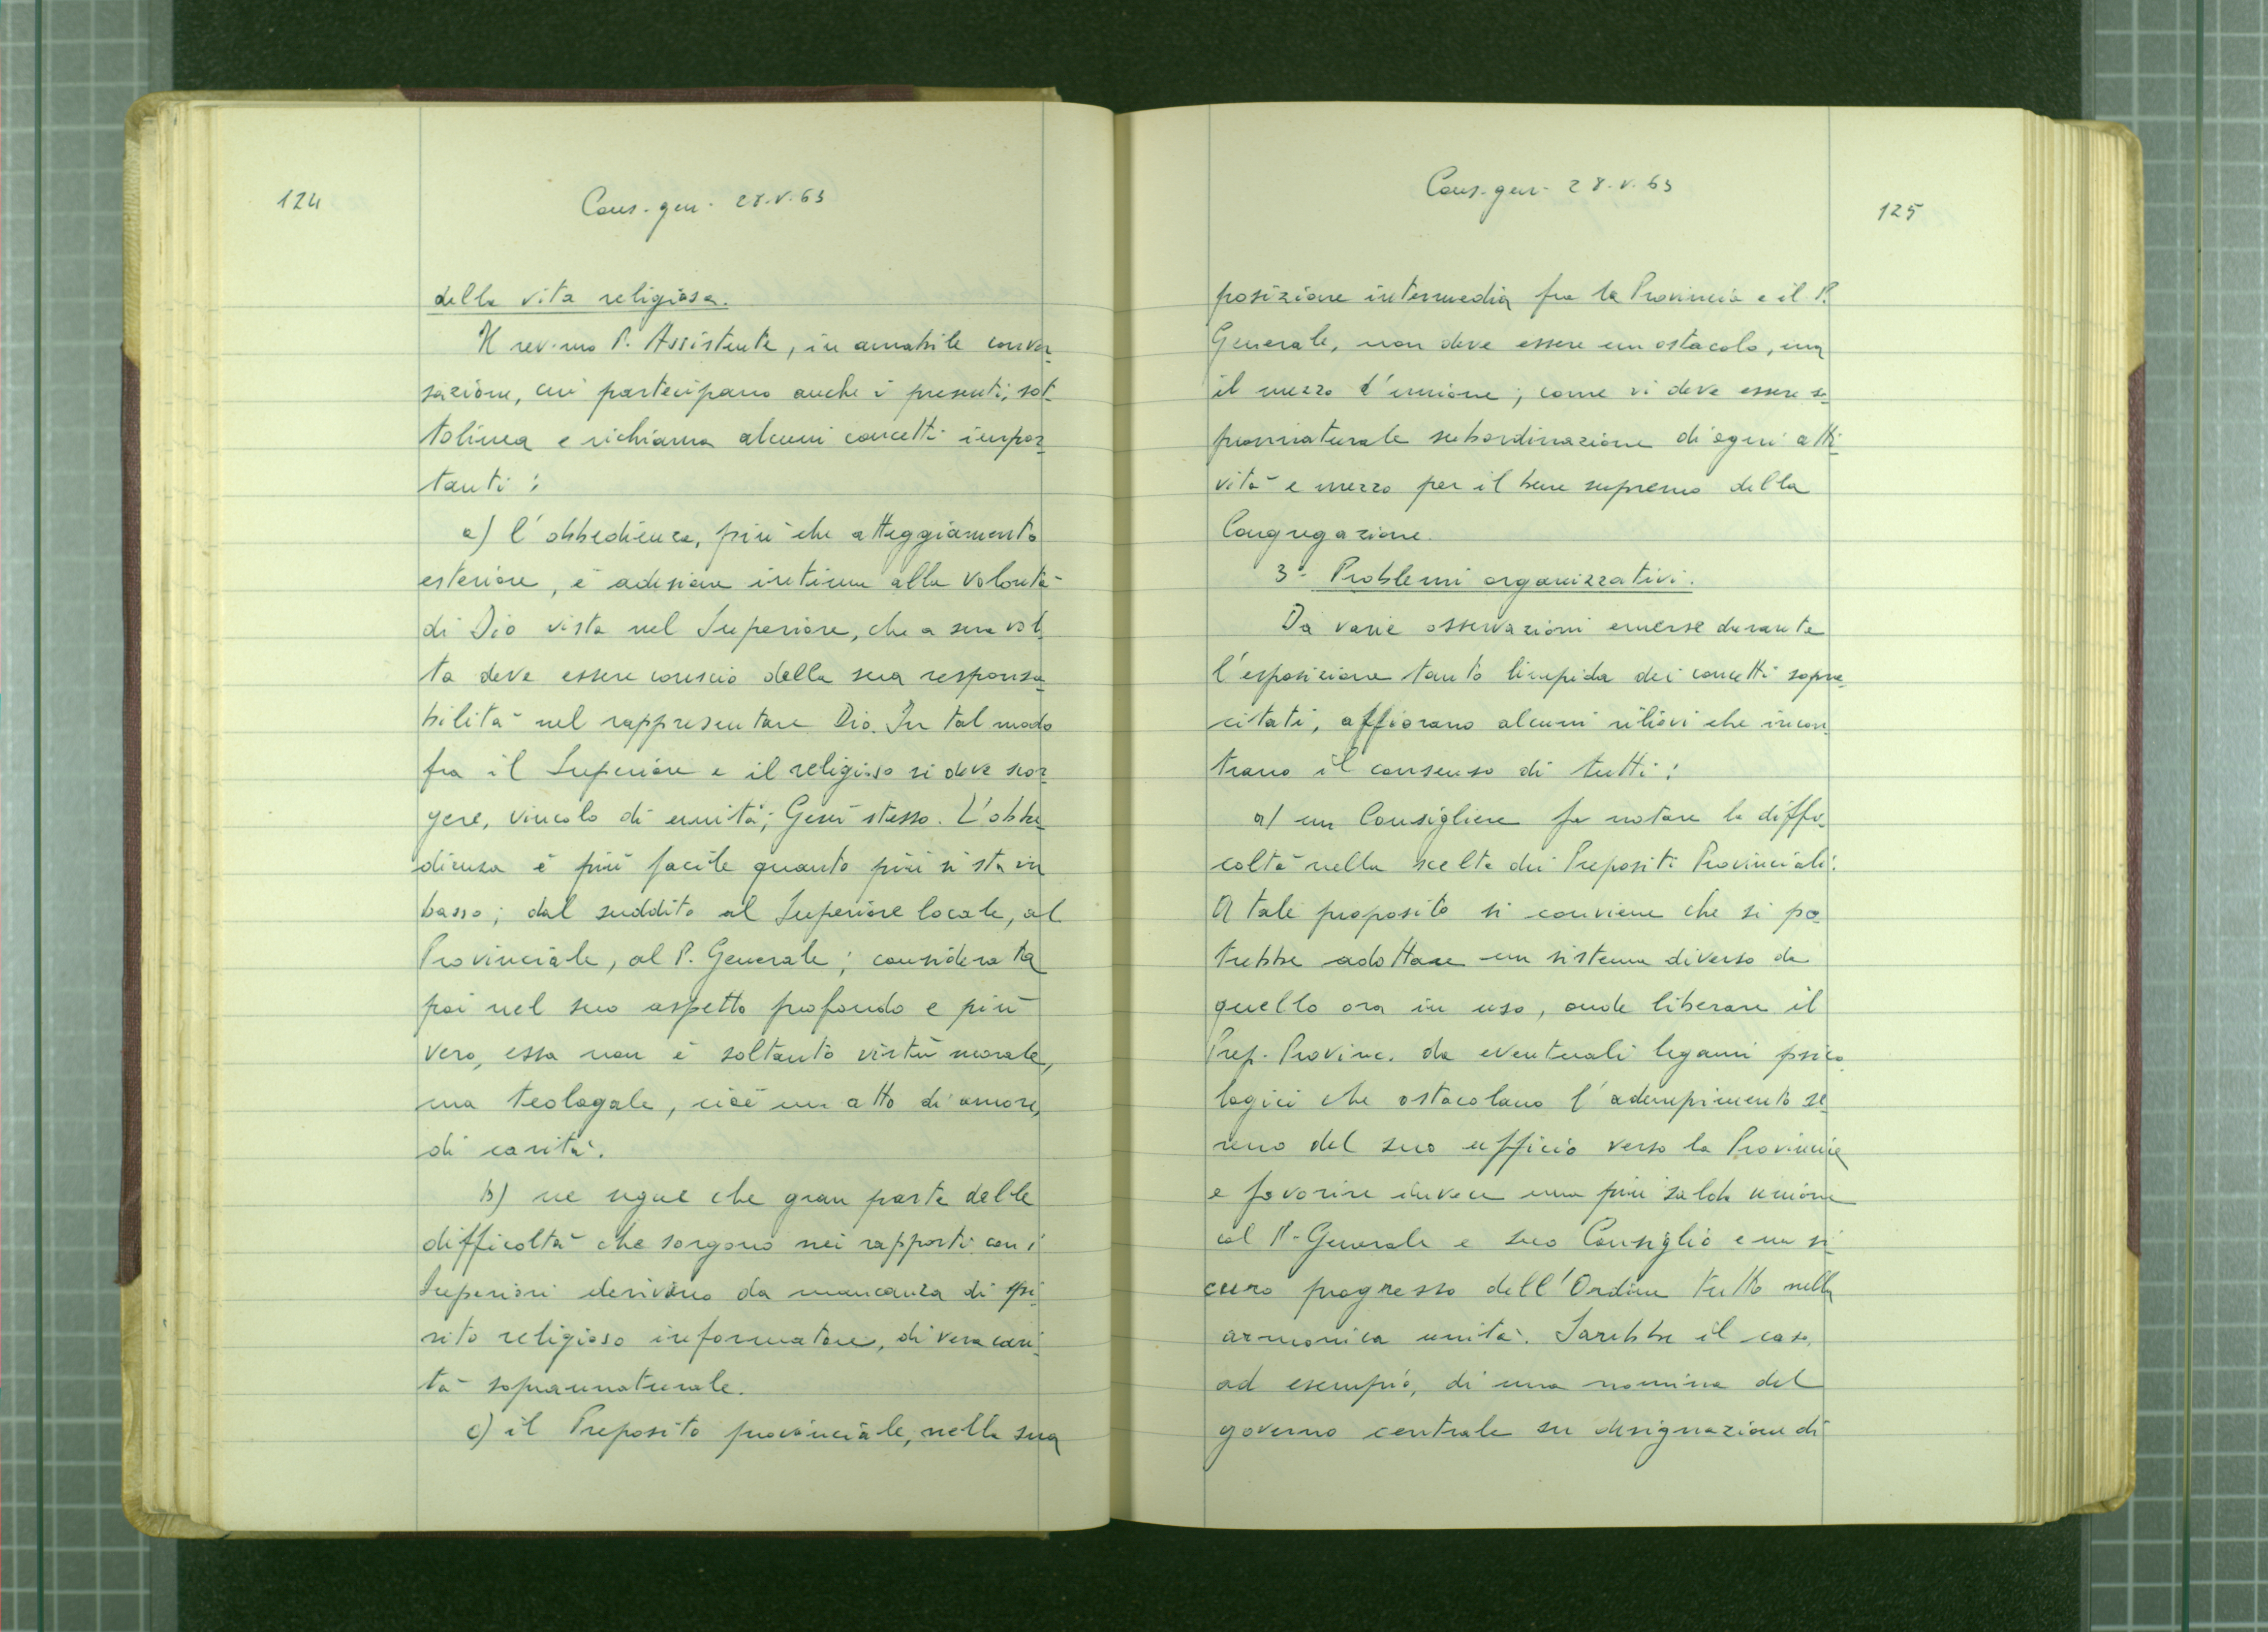 124
Cons. gen. 28.V.63
della vita religiosa.
Il rev.mo P. Assistente, in amabile conver-
sazione, cui partecipano anche i presenti, sot-
tolinea e richiama alcuni concetti impor-
tanti:
a) l'obbedienza, più che atteggiamento
esteriore, è adesione intima alla volontà
di Dio vista nel Superiore, che a sua vol-
ta deve essere conscio della sua responsa-
bilità nel rappresentare Dio. In tal modo
fra il Superiore e il religioso si deve scor-
gere, vincolo di unità, Gesù stesso. L'obbe-
dienza è più facile quanto più si sta in
basso; dal suddito al Superiore locale, al
Provinciale, al P. Generale; considerata
poi nel suo aspetto profondo e più
vero, essa non è soltanto virtù morale,
ma teologale, cioè un atto di amore,
di carità.
b) ne segue che gran parte delle
difficoltà che sorgono nei rapporti con i
Superiori derivano da mancanza di spi-
rito religioso informatore, di vera cari-
tà soprannaturale.
c) il Preposito provinciale, nella sua
Cons. gen. 28.V.63
125
posizione intermedia fra la Provincia e il P.
Generale, non deve essere un ostacolo, ma
il mezzo d'unione; come vi deve essere so-
prannaturale subordinazione di ogni atti-
vità e mezzo per il bene supremo della
Congregazione.
3- Problemi organizzativi.
Da varie osservazioni emerse durante
l'esposizione tanto limpida dei concetti sopra-
citati, affiorano alcuni rilievi che incon-
trano il consenso di tutti:
a) un Consigliere fa notare la diffi-
coltà nella scelta dei Prepositi Provinciali.
A tale proposito si conviene che si po-
trebbe adottare un sistema diverso da
quello ora in uso, onde liberare il
Prep. Provinc. da eventuali legami psico-
logici che ostacolano l'adempimento se-
reno del suo ufficio verso la Provincia
e favorire invece una più salda unione
col P. Generale e suo Consiglio e un si-
curo progresso dell'Ordine tutto nella
armonica unità. Sarebbe il caso,
ad esempio, di una nomina del
governo centrale su designazione di